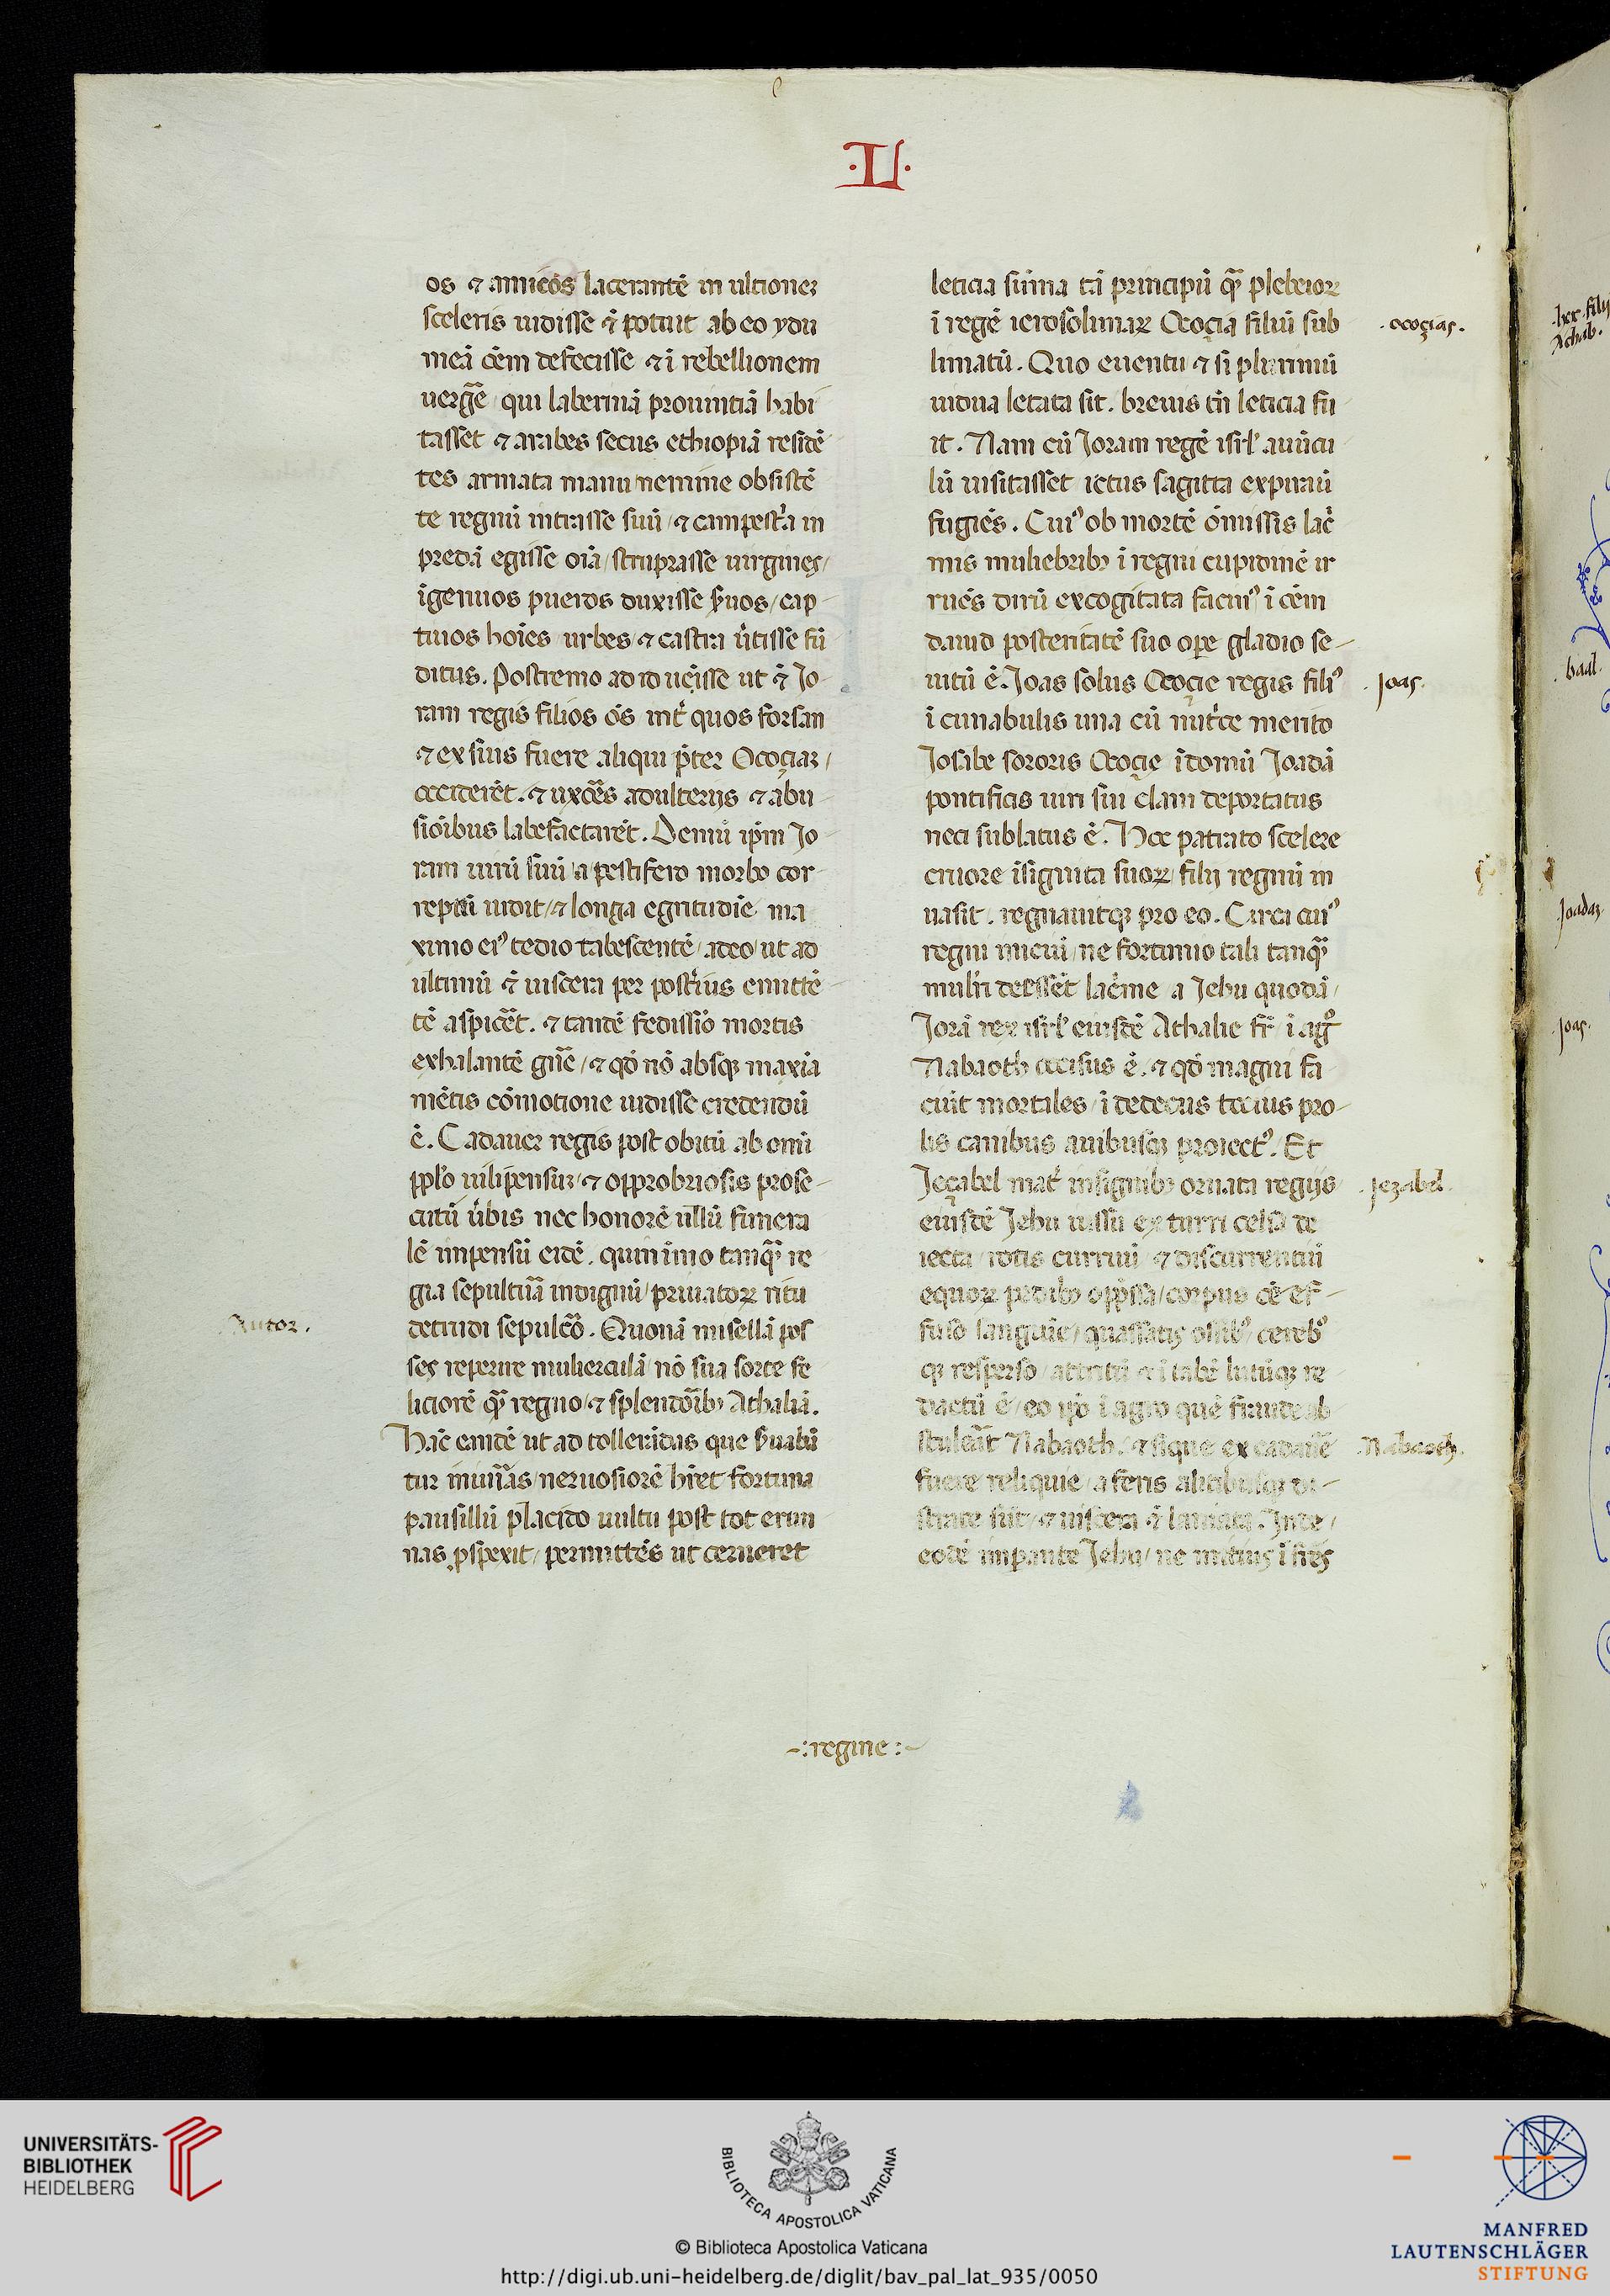 ·II·
os ⁊ amicos lacerantē in ultionez
sceleris uidisse ⁊ potuit ab eo ydu
meā oēm defecisse ⁊ ī rebellionem
uerḡe qui labennā prouintiā habi
tasset ⁊ arabes secus ethiopiā residē
tes armata manu nemine obsistē
te regnū intrasse suū / ⁊ campestīa in
predā egisse oīa / struprasse uirgines /
īgenuos pueros duxisse ẜuos / cap
tiuos hoīes urbes / ⁊ castra ūtisse fū
ditus. Postremo ad id ueīsse ut ⁊ Jo
ram regis filios oēs int̄ quos forsan
⁊ ex suis fuere aliqui p̄ter Ocociaz /
occiderēt. ⁊ uxōes adulterijs ⁊ abu
sioībus labefactarēt. Demū ip̄m Jo
ram uirū suū a pestifero morbo cor
reptū uidit / ⁊ longa egritudīe ma
ximo eiꝰ tedio tabescentē / adeo ut ad
ultimū ⁊ uiscera per post̄ius emittē
tē aspicēt. ⁊ tandē fedissīo mortis
exhalantē gn̄e / ⁊ qd̄ nō absqꝫ maxīa
mētis cōmotione uidisse credendū
ē. Cadauer regis post obitū ab omī
pplo uilipensuz / ⁊ opprobriosis prose
cutū ūbis nec honorē ullū funera
lē impensū eidē. quin imo tanqꝫ re
gia sepultūa indignū / priuatoꝝ ritu
detrudi sepulcō. Quonā misellā pos
ses reperire mulierculā nō sua sorte fe
liciorē qꝫ regno / ⁊ splendoībꝫ Athaliā.
Hāc eandē ut ad tollerādas que ẜuabā
tur iniur̄as / neruosiorē h̄ret fortuna
pausillū placido uultu post tot erun
nas ꝓspexit / permittēs ut cerneret
leticia sūma tā principū qꝫ plebeioꝝ
ī regē ierosolimaꝝ Ocociā filiū sub
limatū. Quo euentu ⁊ si plurimū
uidua letata sit. breuis tn̄ leticia fu
it. Nam cū Joram regē isrl̄ auūcu
lū uisitasset ictus sagitta expirauī
fugiēs. Cuiꝰ ob mortē ōmissis lac̄
mis muliebribꝫ ī regni cupidinē ir
ruēs dirū excogitata facinꝰ ī oēm
dauid posteritatē suo ope gladio se
uitū ē. Joas solus Ococie regis filiꝰ
ī cunabulis una cū nut̄ce merito
Josabe sororis Ococie ī domū Joadā
pontificis uiri sui clam deportatus
neci sublatus ē. Hoc patrato scelere
cruore īsignita suoꝝ / filij regnū in
uasit. regnauitqꝫ pro eo. Circa cuiꝰ
regni
ne fortunio tali tanqꝫ
mulr̄i deessēt lac̄me / a Jehu quodā /
Jorā rex isrl̄ eiusdē Athalie fr̄ ī agꝰ
Nabaoth occisus ē. ⁊ qd̄ magni fa
ciūt mortales / ī dedecus tocius pro
lis canibus auibusqꝫ proiectꝰ. Et
Jeçabel mat̄ insignibꝫ ornata regijs
eiusdē Jehu iussu ex turri celsa de
iecta / rotis curruū ⁊ discurrentiū
equoꝝ pedibꝫ opp̄ssa / corpus oē ef
fuso sanguīe / quassatis ossibꝰ / cerebꝰ
qꝫ resperso / attritū ⁊ ī tabē lutūqꝫ re
dactū ē / eo ip̄o ī agro quē fraude ab
stulerāt Nabaoth. ⁊ si que ex cadauē
fuere reliquie / a feris alitibusqꝫ di
stracte sūt / ⁊ uiscera ⁊ laniata. Inde /
eodē impante Jehu / ne minus ī fr̄es
·ococias.
·Joas.
·Jezabel.
·Nabaoth.
Autor.
-:regine:-
Achab.
·baal·
Joadas
·Joas·
UNIVERSITÄTS-
BIBLIOTHEK
HEIDELBERG
BIBLIOTECA APOSTOLICA VATICANA
© Biblioteca Apostolica Vaticana
MANFRED
LAUTENSCHLÄGER
STIFTUNG
http://digi.ub.uni-heidelberg.de/diglit/bav_pal_lat_935/0050